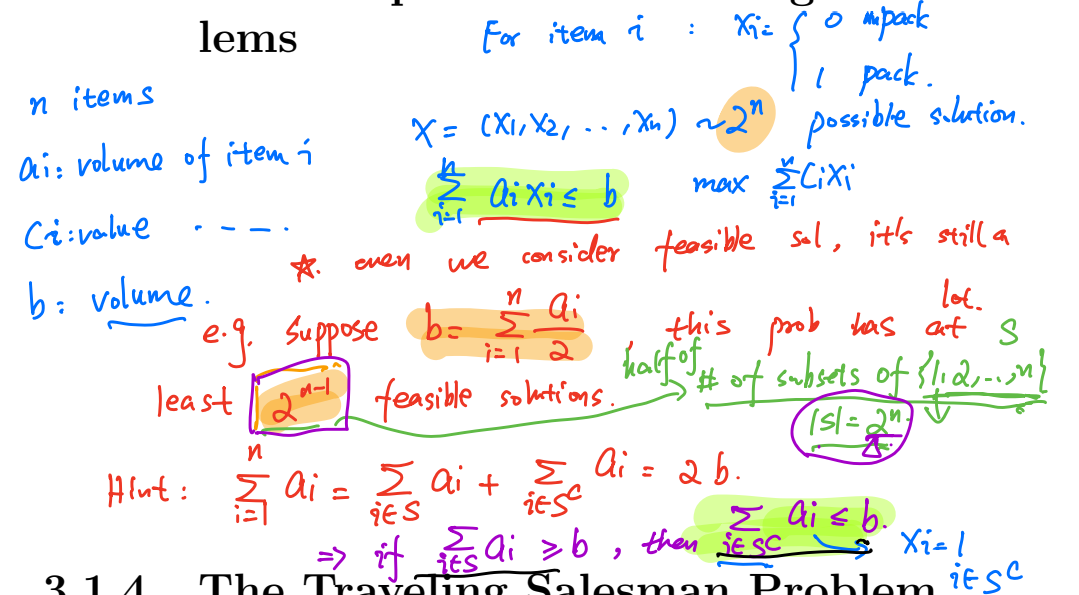 lems
For item i : xi = { 0 unpack
1 pack.
n items
X = (x1, x2, . . , xn) ~ 2^n possible solution.
ai: volume of item i
∑_{i=1}^{n} ai xi ≤ b
max ∑_{i=1}^{n} Ci Xi
Ci: value . - - - .
☆. even we consider feasible sol, it's still a lot.
b: volume.
e.g. suppose b = ∑_{i=1}^{n} ai/2 this prob has at
least 2^{n-1} feasible solutions.
half of # of subsets of {1, 2, .., n}
S
|S| = 2^n.
Hint: ∑_{i=1}^{n} ai = ∑_{i∈S} ai + ∑_{i∈S^C} ai = 2b.
⇒ if ∑_{i∈S} ai ≥ b, then ∑_{i∈S^C} ai ≤ b.
Xi = 1
i∈S^C
3.1.4 The Traveling Salesman Problem